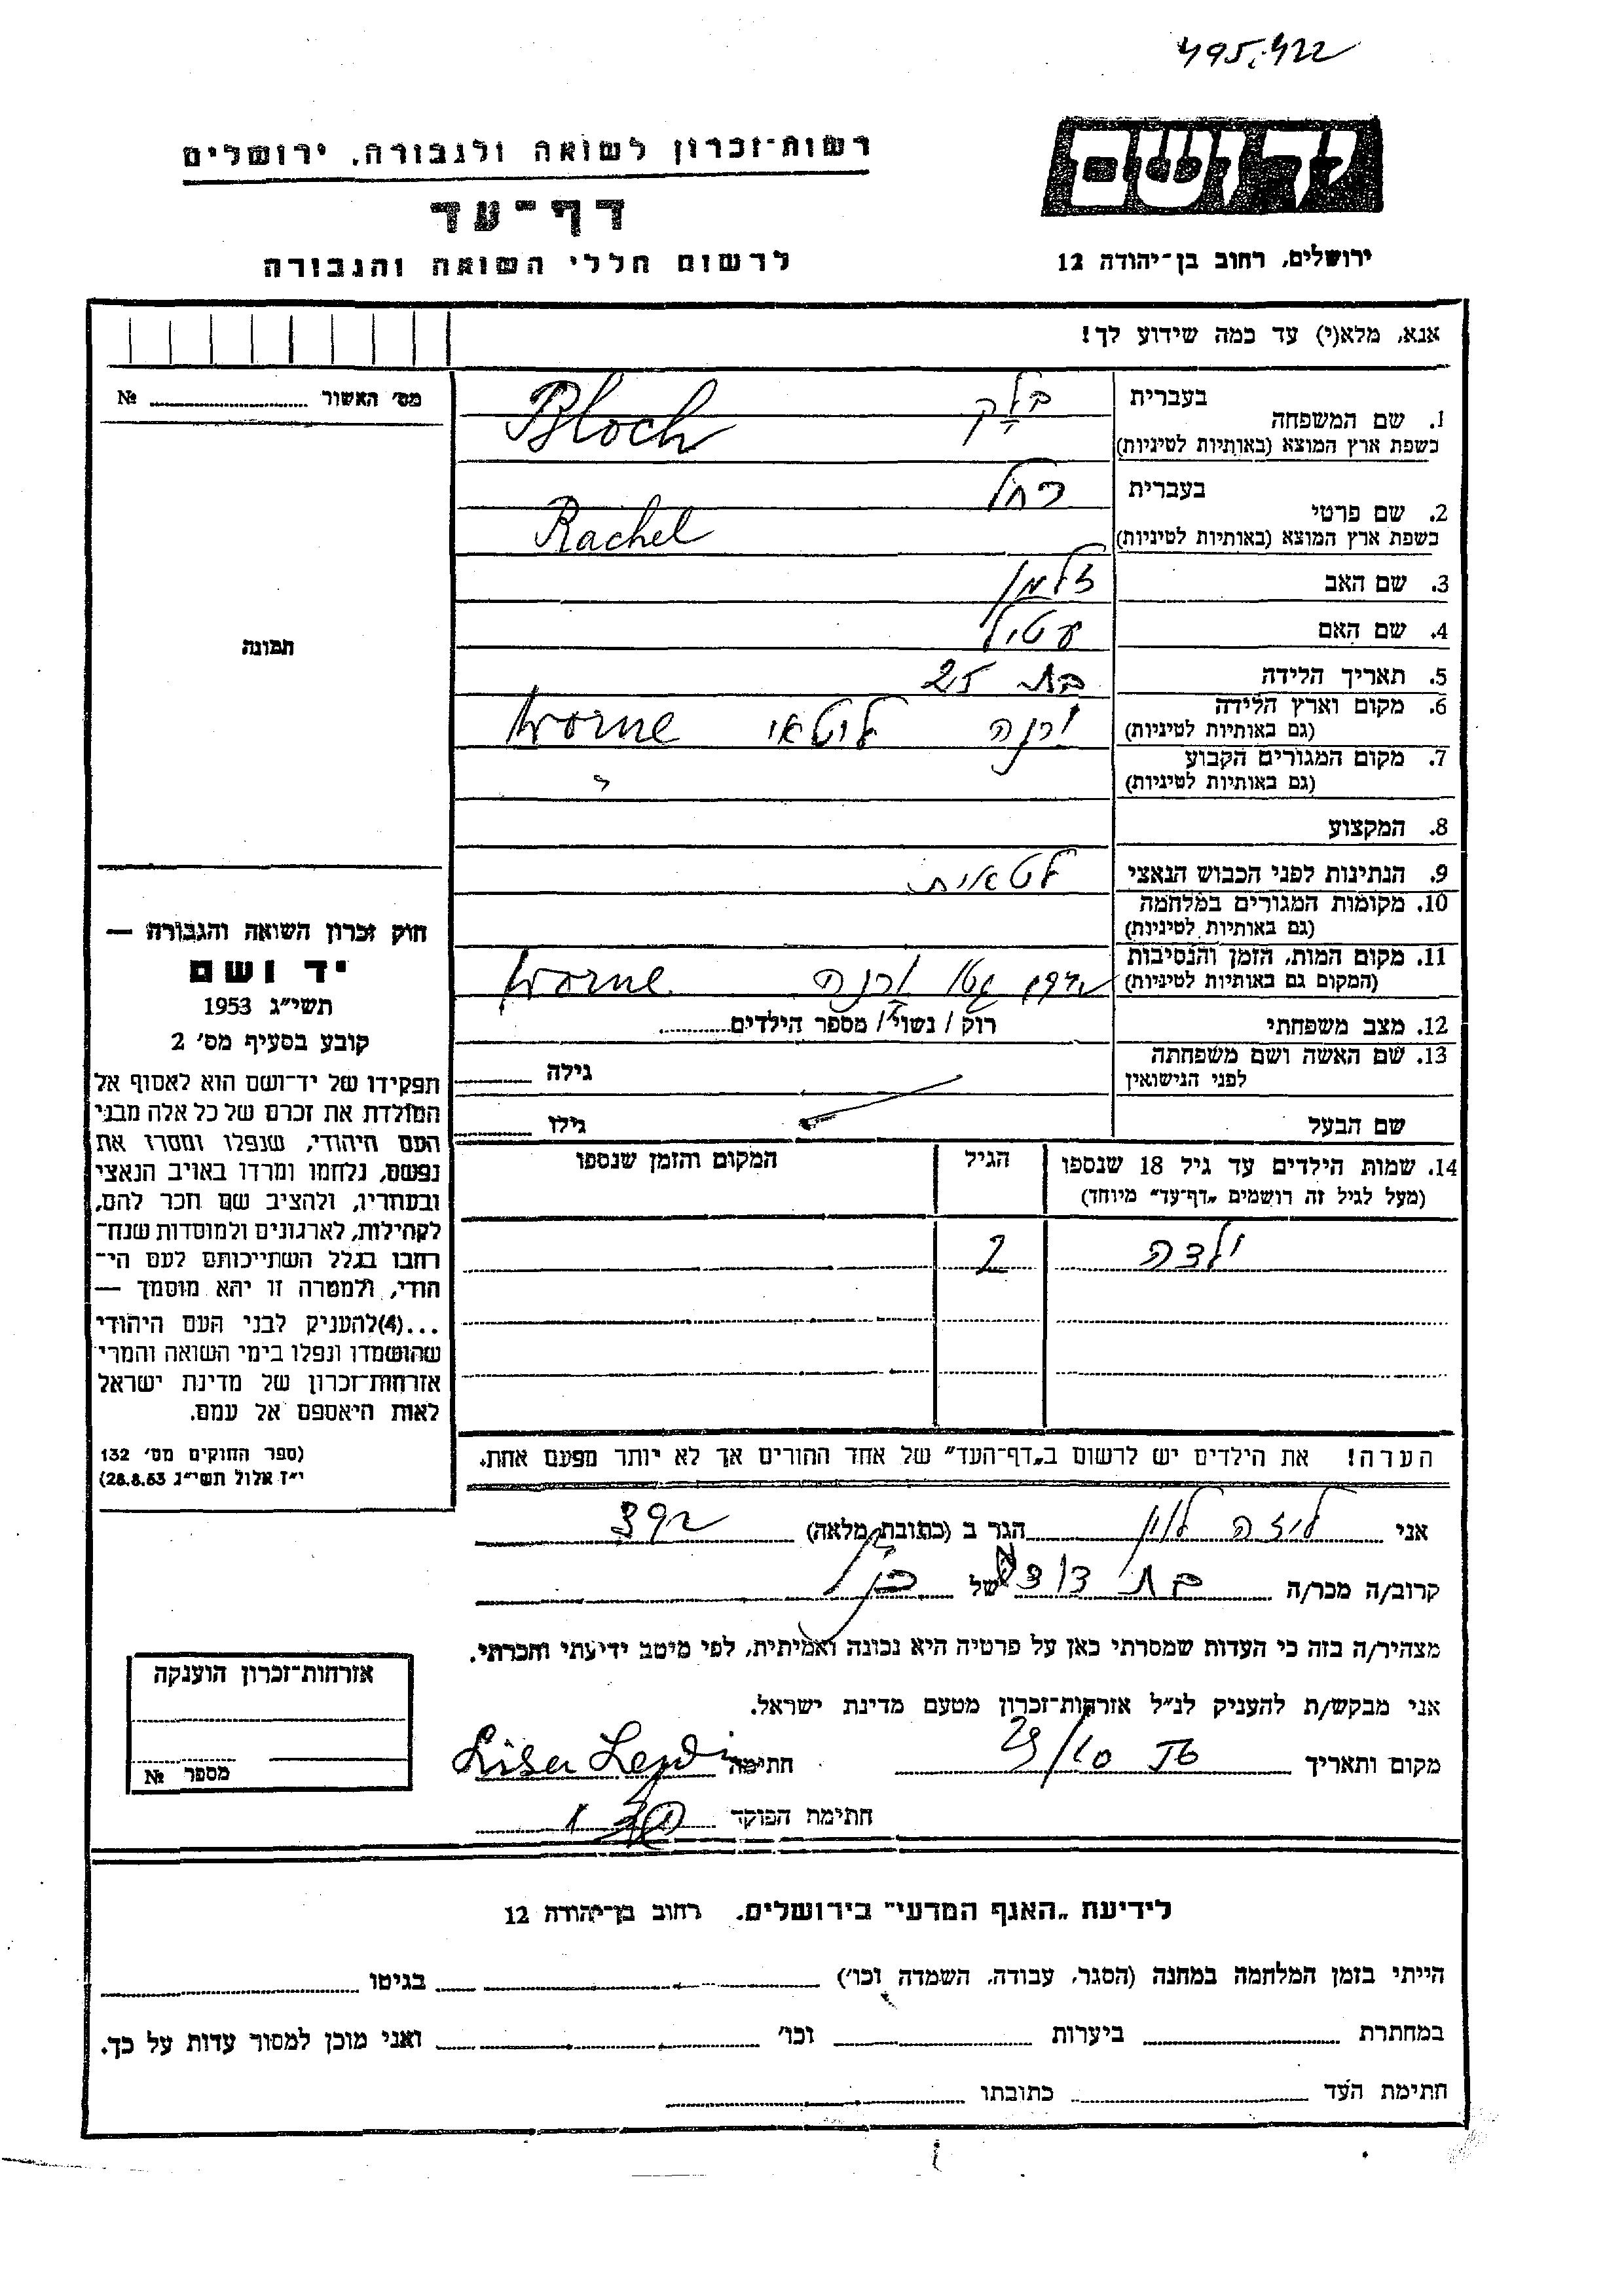 495.422
יד ושם
רשות-זכרון לשואה ולגבורה, ירושלים
דף-עד
לרשום חללי השואה והגבורה
ירושלים, רחוב בן-יהודה 12
אנא, מלא(י) עד כמה שידוע לך!
מס' האשור № 
1. שם המשפחה
בעברית
בלק
בשפת ארץ המוצא (באותיות לטיניות)
Bloch
2. שם פרטי
בעברית
רחל
בשפת ארץ המוצא (באותיות לטיניות)
Rachel
3. שם האב
זלמן
4. שם האם
עטיל
5. תאריך הלידה
בת 25
6. מקום וארץ הלידה
(גם באותיות לטיניות)
ורנה ליטאי Worne
7. מקום המגורים הקבוע
(גם באותיות לטיניות)
8. המקצוע
9. הנתינות לפני הכבוש הנאצי
לטאית
10. מקומות המגורים במלחמה
(גם באותיות לטיניות)
11. מקום המות, הזמן והנסיבות
(המקום גם באותיות לטיניות)
גטו ורנה Worne
12. מצב משפחתי
רוק / נשוי / מספר הילדים
13. שם האשה ושם משפחתה
לפני הנישואין
גילה
שם הבעל
גילו
14. שמות הילדים עד גיל 18 שנספו
(מעל לגיל זה רושמים „דף-עד" מיוחד)
הגיל
המקום והזמן שנספו
ילדה 2
הערה! את הילדים יש לרשום ב„דף-העד" של אחד ההורים אך לא יותר מפעם אחת.
תמונה
חוק זכרון השואה והגבורה —
יד ושם
תשי"ג 1953
קובע בסעיף מס' 2
תפקידו של יד-ושם הוא לאסוף אל
המולדת את זכרם של כל אלה מבני
העם היהודי, שנפלו ומסרו את
נפשם, נלחמו ומרדו באויב הנאצי
ובעוזריו, ולהציב שם וזכר להם,
לקהילות, לארגונים ולמוסדות שנח-
רבו בגלל השתייכותם לעם הי-
הודי, ולמטרה זו יהא מוסמך —
...(4)להעניק לבני העם היהודי
שהושמדו ונפלו בימי השואה והמרי
אזרחות-זכרון של מדינת ישראל
לאות היאספם אל עמם.
(ספר החוקים מס' 132
י"ז אלול תשי"ג 28.8.53)
אני ליזה לוין הגר ב (כתובת מלאה)
קרוב/ה מכר/ה בת דודה של
מצהיר/ה בזה כי העדות שמסרתי כאן על פרטיה היא נכונה ואמיתית, לפי מיטב ידיעתי והכרתי.
אני מבקש/ת להעניק לנ"ל אזרחות-זכרון מטעם מדינת ישראל.
מקום ותאריך חתימה
חתימת הפוקד
אזרחות-זכרון הוענקה
מספר №
לידיעת „האגף המדעי" בירושלים, רחוב בן-יהודה 12
הייתי בזמן המלחמה במחנה (הסגר, עבודה, השמדה וכו') בגיטו
במחתרת ביערות וכו' ואני מוכן למסור עדות על כך.
חתימת העד כתובתו